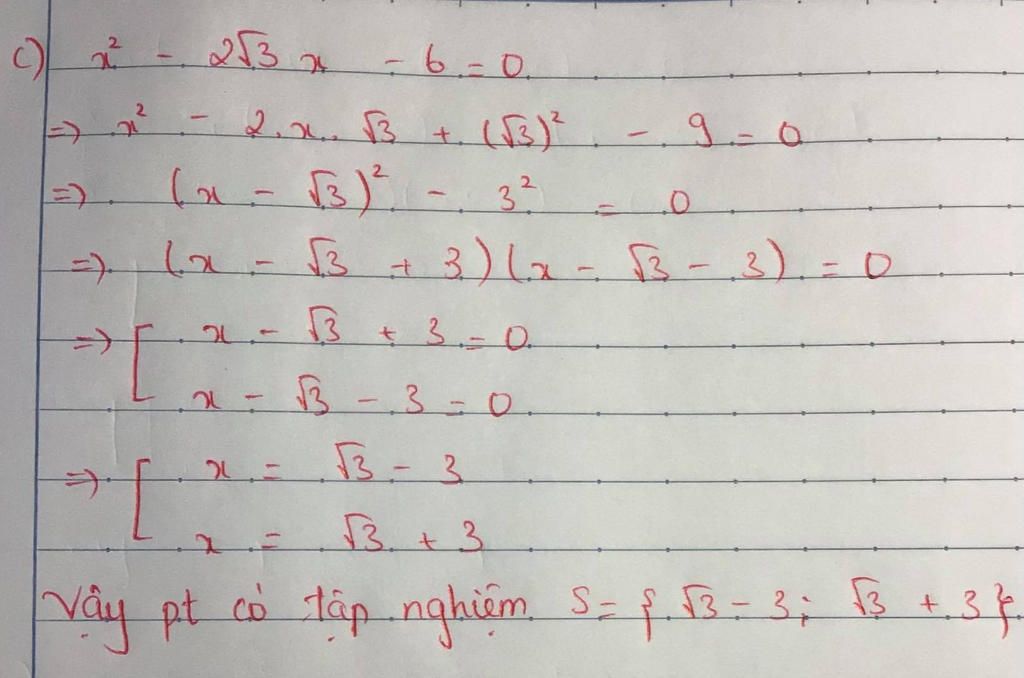 c) x² - 2√3 x - 6 = 0
=> x² - 2.x.√3 + (√3)² - 9 = 0
=> (x - √3)² - 3² = 0
=> (x - √3 + 3)(x - √3 - 3) = 0
=> [ x - √3 + 3 = 0
x - √3 - 3 = 0
=> [ x = √3 - 3
x = √3 + 3
Vậy pt có tập nghiệm S = { √3 - 3; √3 + 3 }.